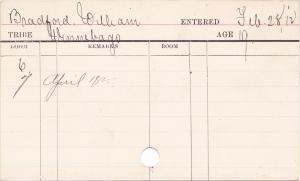 Bradford, William ENTERED Feb. 28/12
TRIBE Winnebago AGE 19
REMARKS ROOM
6
7 April